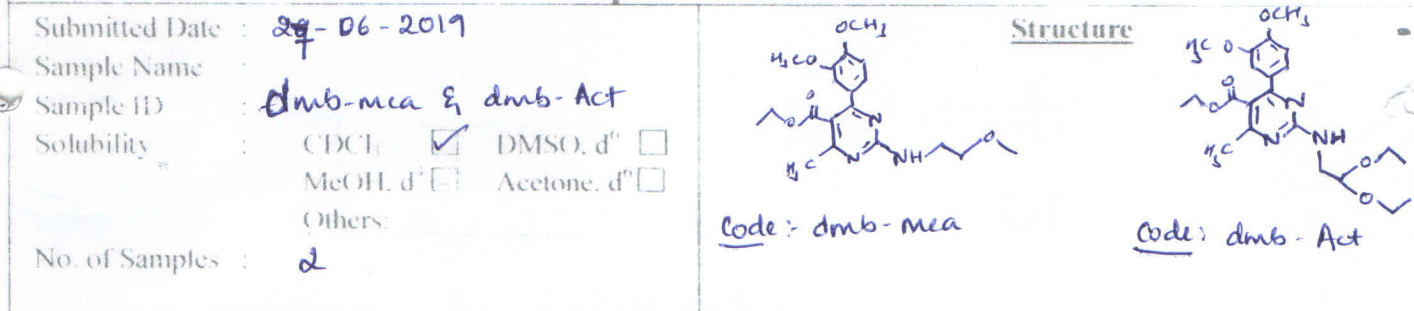 Submitted Date : 27-06-2019
Sample Name
Sample ID : dmb-mea & dmb-Act
Solubility : CDCl₃ ☑ DMSO, d⁶ ☐
MeOH, d⁴ ☐ Acetone, d⁶ ☐
Others:
No. of Samples : 2
Structure
OCH₃
H₃CO
O
O
N
N
H₃C
NH
O
Code :- dmb-mea
OCH₃
H₃C O
O
O
N
N
H₃C
NH
O
O
Code : dmb-Act